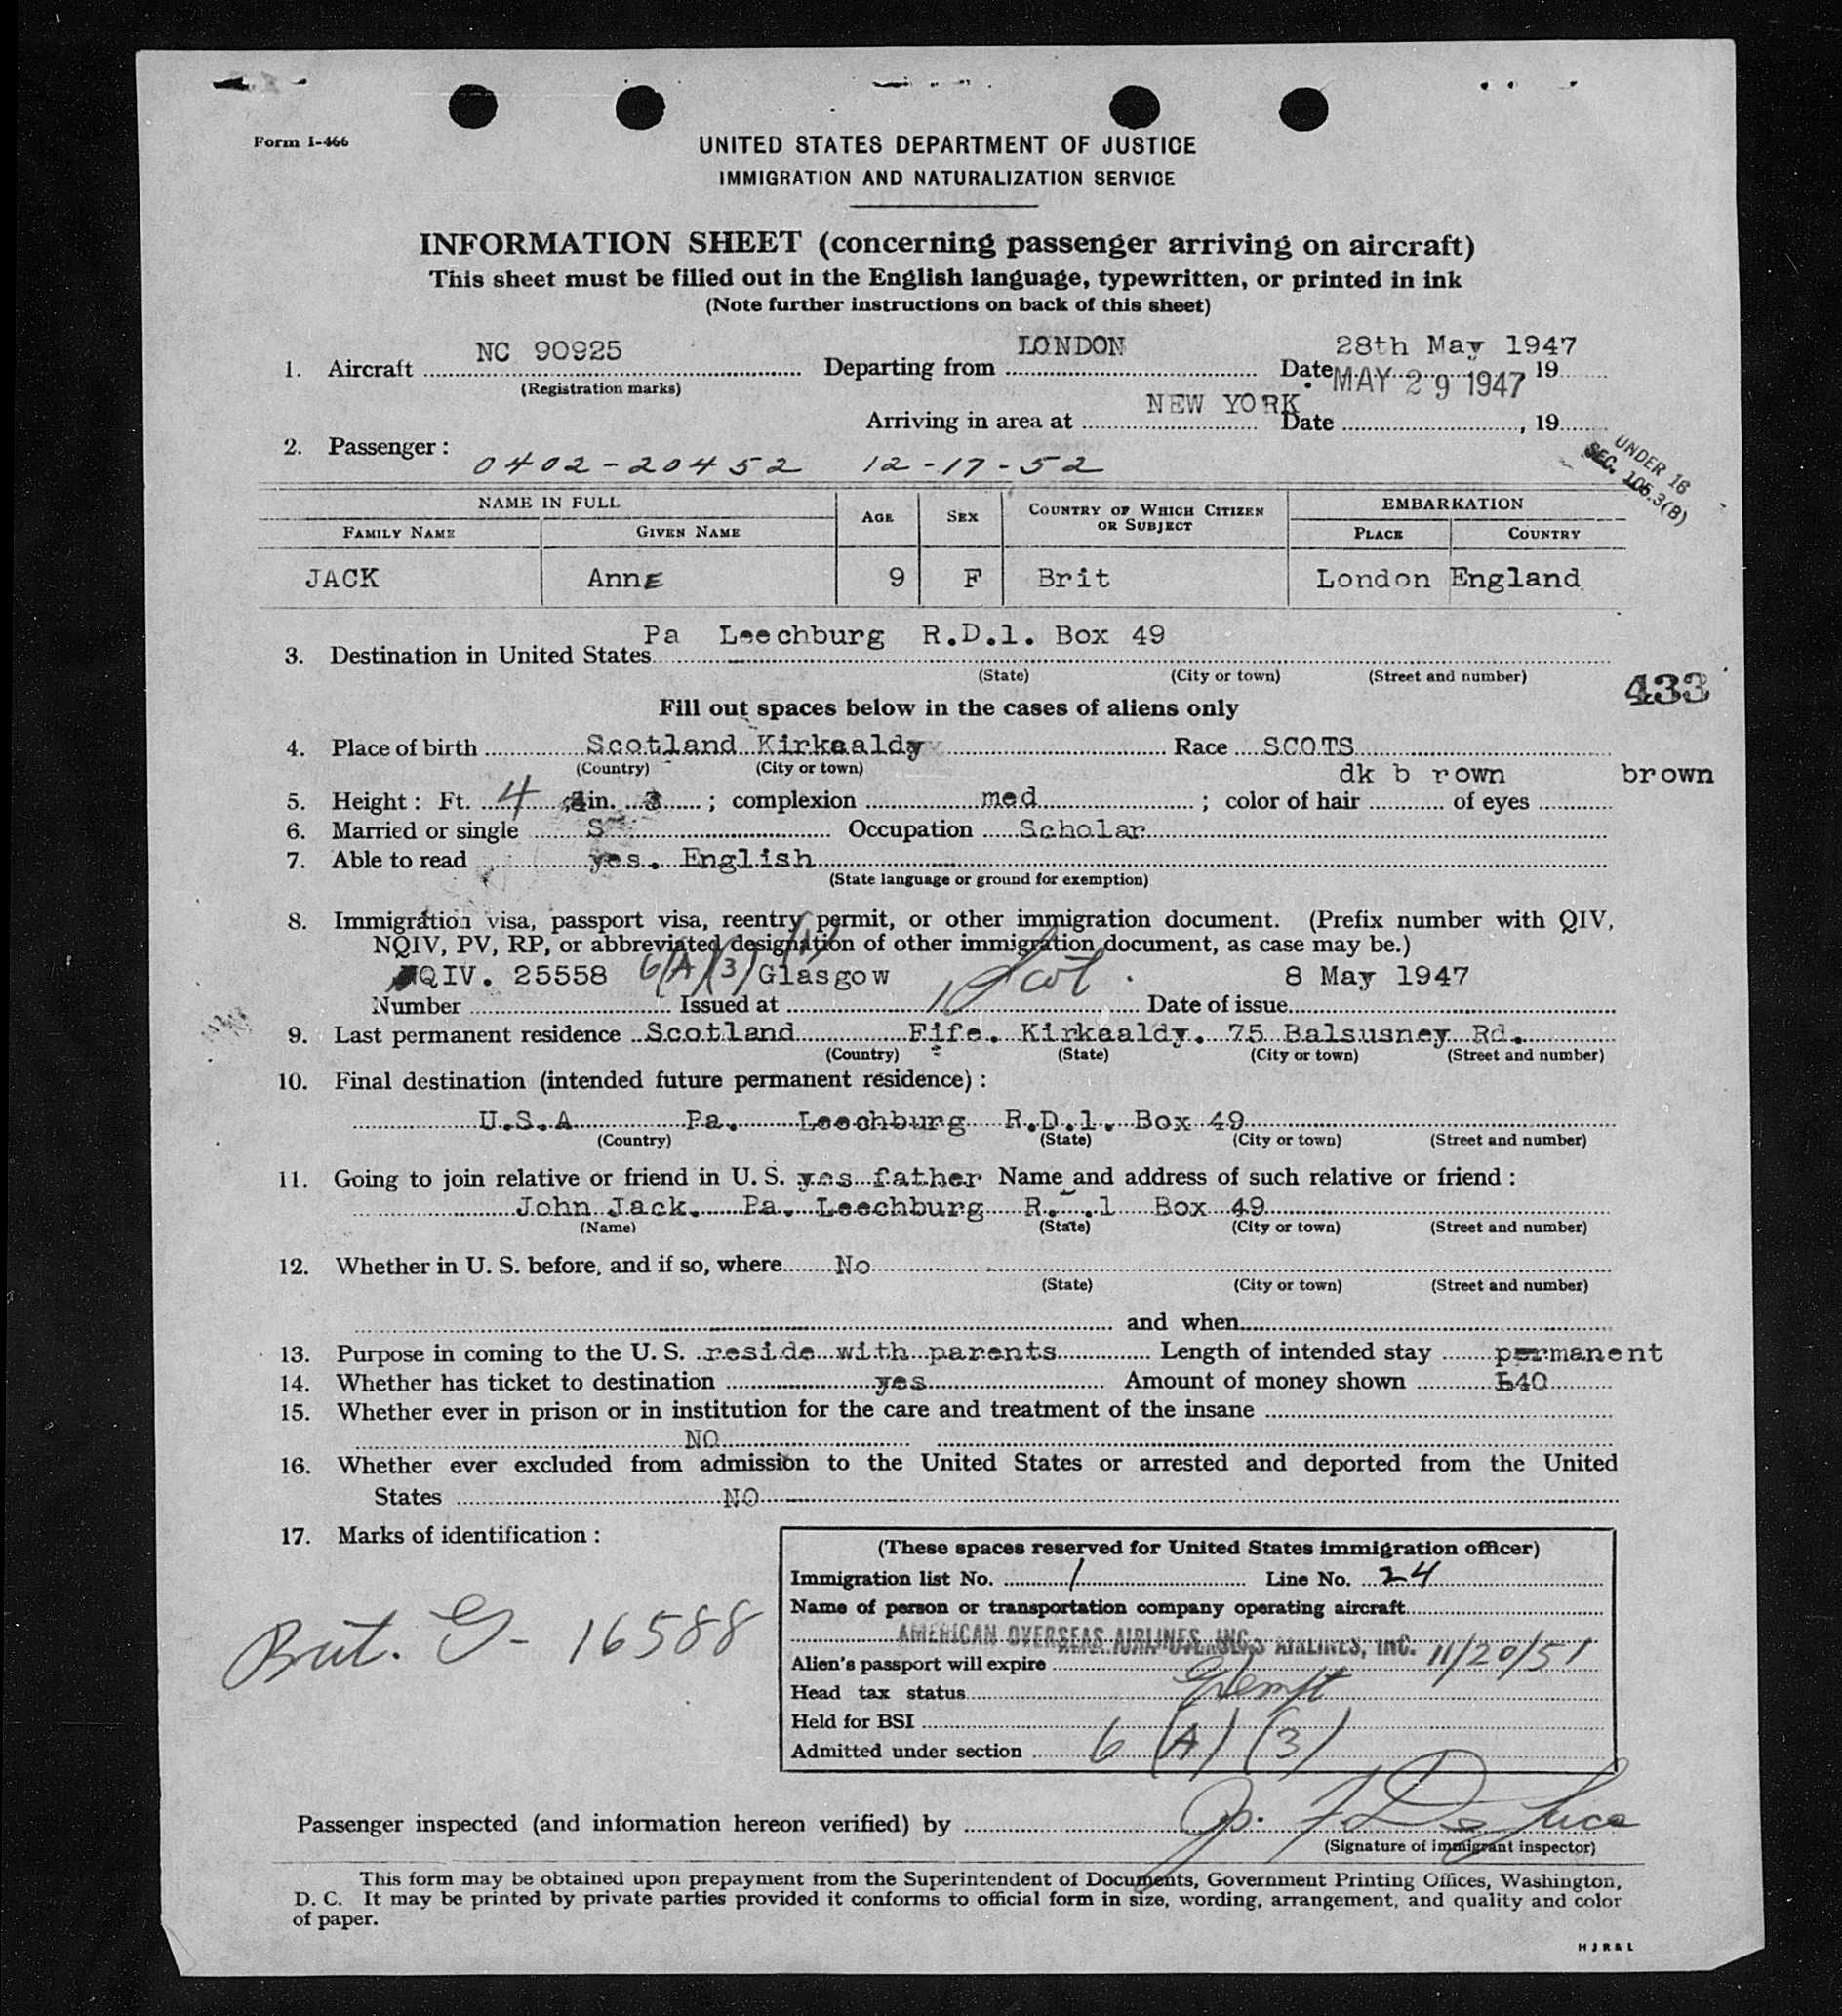 Form I-466
UNITED STATES DEPARTMENT OF JUSTICE
IMMIGRATION AND NATURALIZATION SERVICE
INFORMATION SHEET (concerning passenger arriving on aircraft)
This sheet must be filled out in the English language, typewritten, or printed in ink
(Note further instructions on back of this sheet)
1. Aircraft NC 90925 Departing from LONDON Date 28th May 1947, 19
(Registration marks)
MAY 29 1947
Arriving in area at NEW YORK Date, 19
2. Passenger: 0402-20452 12-17-52
UNDER 16
SEC. 105.3(B)
NAME IN FULL AGE SEX COUNTRY OF WHICH CITIZEN OR SUBJECT EMBARKATION
FAMILY NAME GIVEN NAME PLACE COUNTRY
JACK AnnE 9 F Brit London England
3. Destination in United States Pa Leechburg R.D.1. Box 49
(State) (City or town) (Street and number)
433
Fill out spaces below in the cases of aliens only
4. Place of birth Scotland Kirkaaldy Race SCOTS
(Country) (City or town)
5. Height: Ft. 4 in. 3; complexion med; color of hair dk b rown of eyes brown
6. Married or single S Occupation Scholar
7. Able to read yes. English
(State language or ground for exemption)
8. Immigration visa, passport visa, reentry permit, or other immigration document. (Prefix number with QIV,
NQIV, PV, RP, or abbreviated designation of other immigration document, as case may be.)
QIV. 25558 6(A)(3) Glasgow Scot. 8 May 1947
Number Issued at Date of issue
9. Last permanent residence Scotland Fife. Kirkaaldy. 75 Balsusney Rd.
(Country) (State) (City or town) (Street and number)
10. Final destination (intended future permanent residence):
U.S.A Pa. Leechburg R.D.1. Box 49
(Country) (State) (City or town) (Street and number)
11. Going to join relative or friend in U. S. yes father Name and address of such relative or friend:
John Jack. Pa. Leechburg R. .1 Box 49
(Name) (State) (City or town) (Street and number)
12. Whether in U. S. before, and if so, where No
(State) (City or town) (Street and number)
and when
13. Purpose in coming to the U. S. reside with parents Length of intended stay permanent
14. Whether has ticket to destination yes Amount of money shown £40
15. Whether ever in prison or in institution for the care and treatment of the insane
NO
16. Whether ever excluded from admission to the United States or arrested and deported from the United
States NO
17. Marks of identification:
Brit. G- 16588
(These spaces reserved for United States immigration officer)
Immigration list No. 1 Line No. 24
Name of person or transportation company operating aircraft
AMERICAN OVERSEAS AIRLINES, INC. AIRLINES, INC.
Alien's passport will expire 11/20/51
Head tax status Exempt
Held for BSI
Admitted under section 6 (A) (3)
Passenger inspected (and information hereon verified) by
(Signature of immigrant inspector)
This form may be obtained upon prepayment from the Superintendent of Documents, Government Printing Offices, Washington,
D. C. It may be printed by private parties provided it conforms to official form in size, wording, arrangement, and quality and color
of paper.
H J R & L